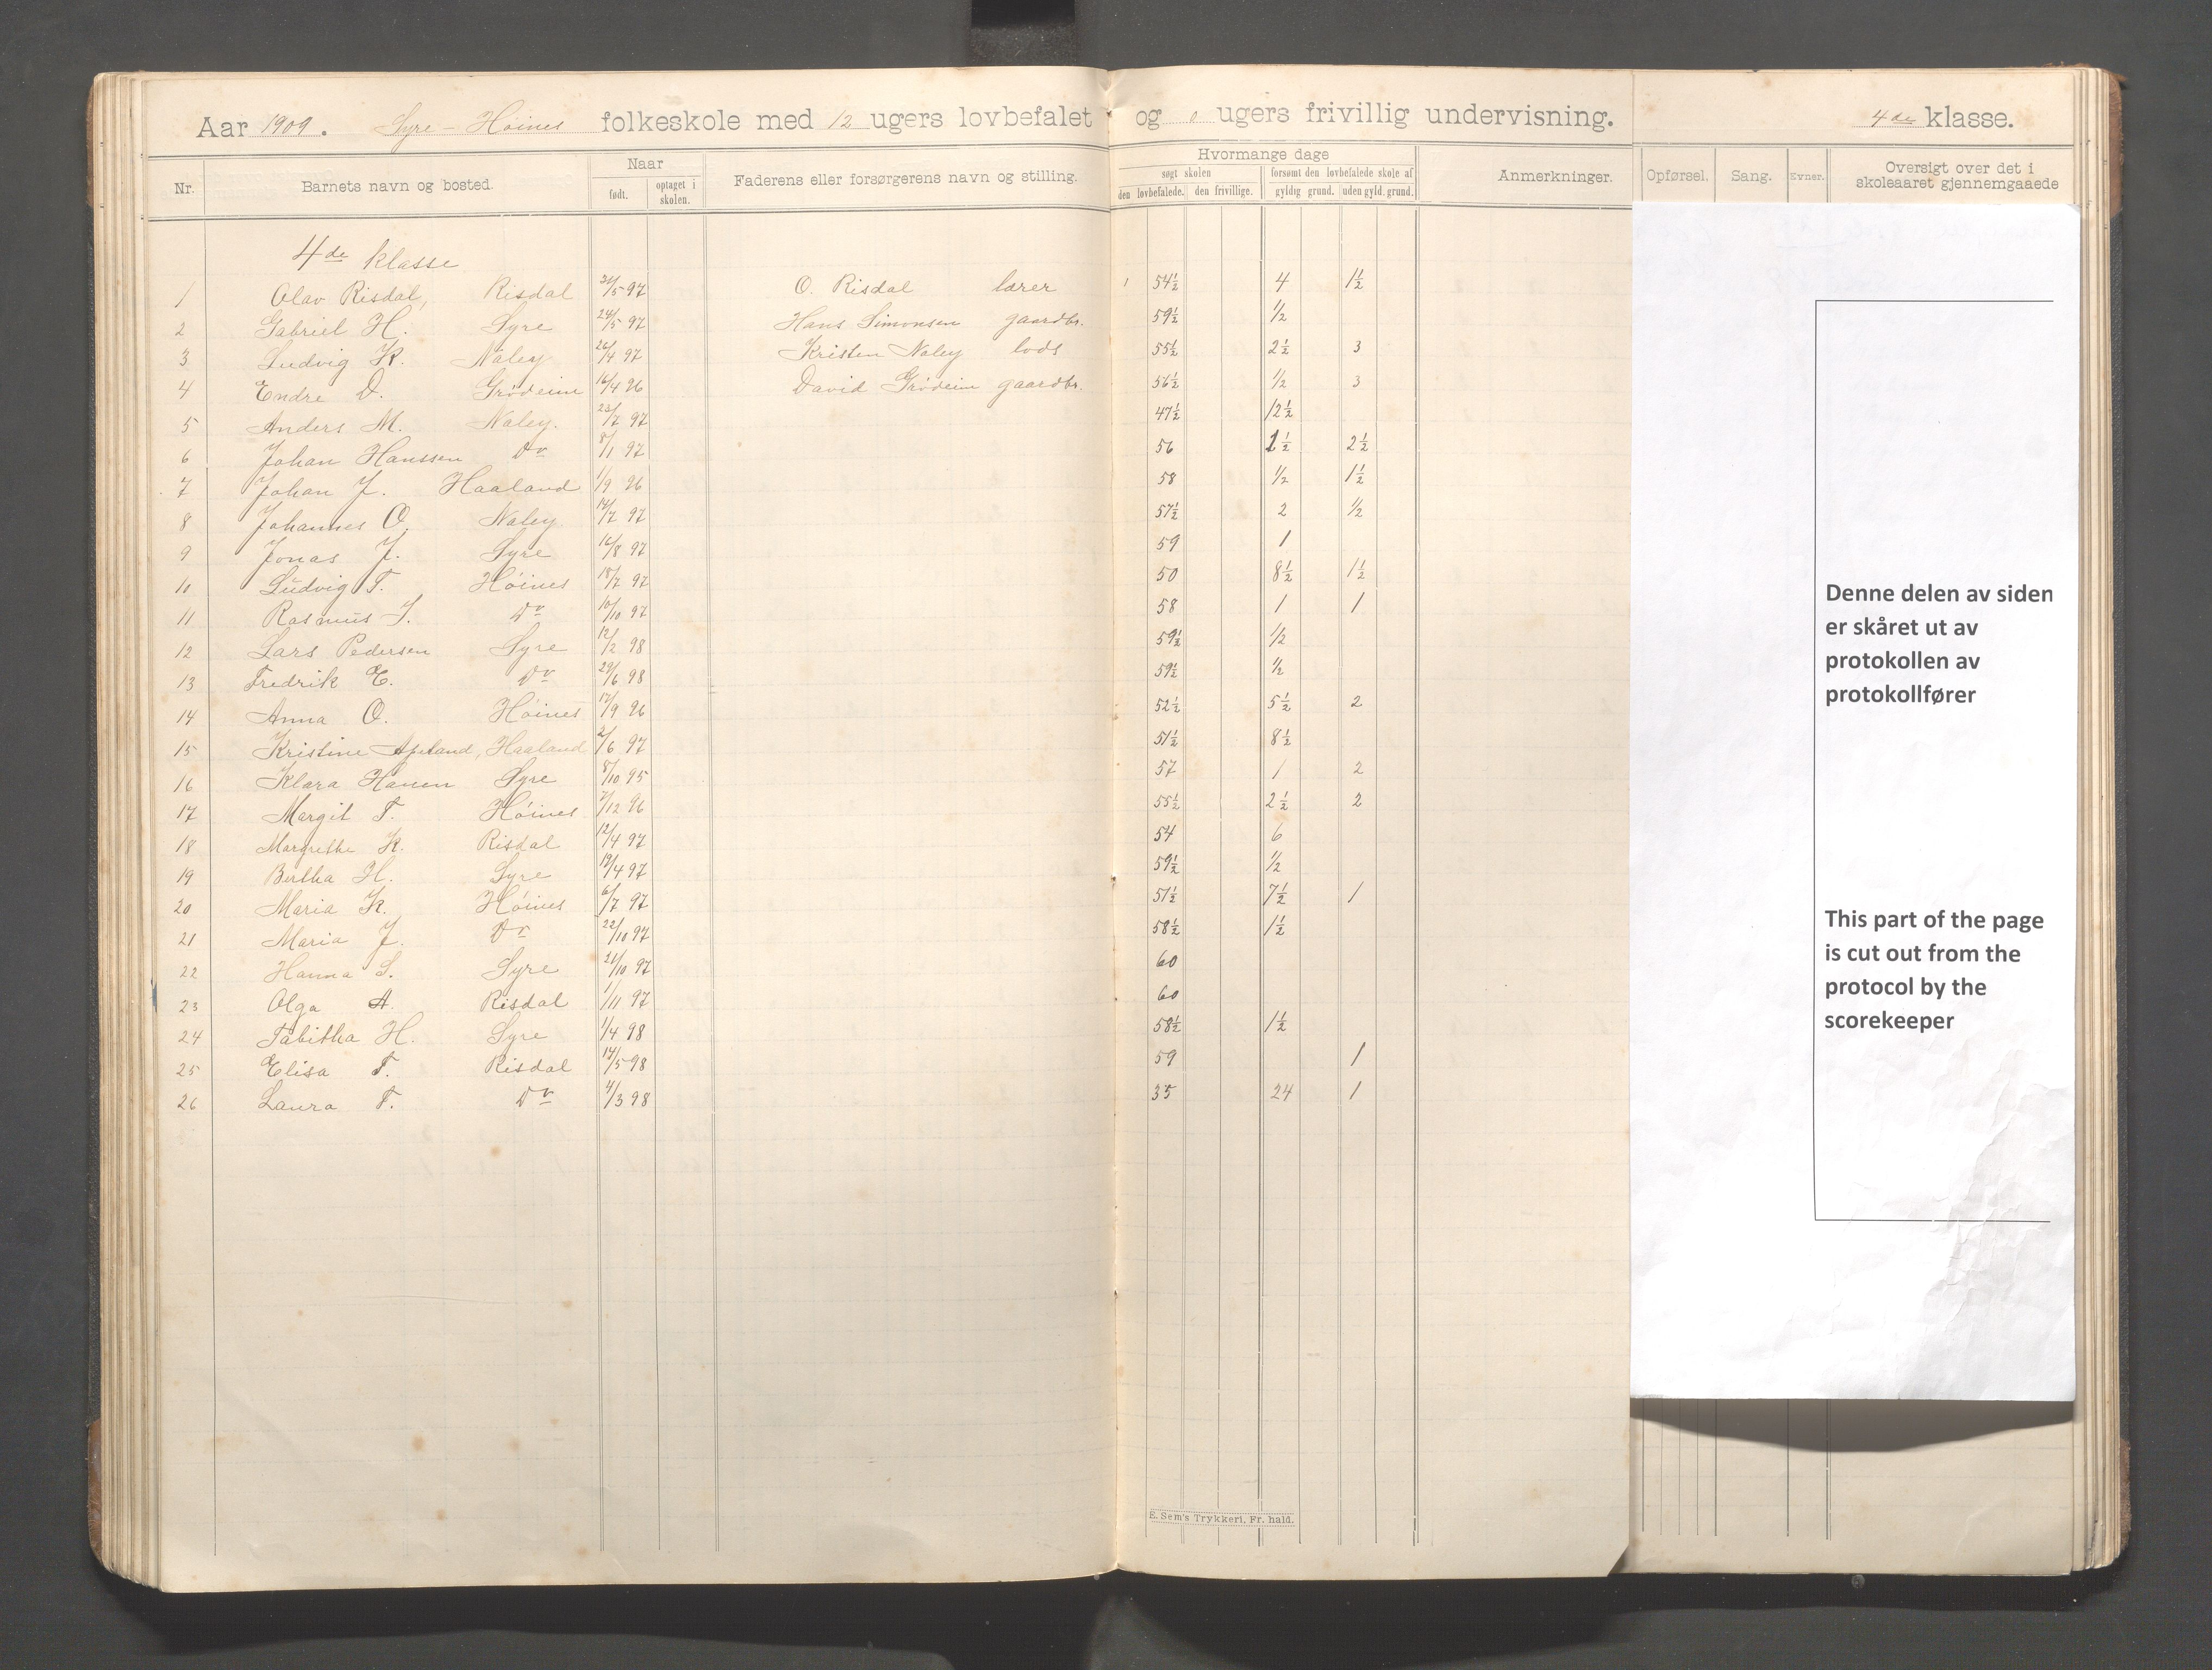 Aar 1909. Syre - Høines folkeskole med 12 ugers lovbefalet og 0 ugers frivillig undervisning. 4de klasse.
Nr. Barnets navn og bosted. Naar født. optaget i skolen. Faderens eller forsørgerens navn og stilling. Hvormange dage søgt skolen den lovbefalede. den frivillige. forsømt den lovbefalede skole af gyldig grund. uden gyld. grund. Anmerkninger. Opførsel. Sang. Evner. Oversigt over det i skoleaaret gjennemgaaede
4de klasse
1 Olav Risdal, Risdal 31/5 97 O. Risdal lærer 54½ 4 1½
2 Gabriel H. Syre 24/5 97 Hans Simonsen gaardbr. 59½ ½
3 Ludvig K. Naley 26/4 97 Kristen Naley lods 55½ 2½ 3
4 Endre D. Grødeim 16/4 96 David Grødeim gaardbr. 56½ ½ 3
5 Anders M. Naley. 23/7 97 47½ 12½
6 Johan Hanssen Do 8/1 97 56 1½ 2½
7 Johan J. Haaland 1/9 96 58 ½ 1½
8 Johannes O. Naley 14/7 97 57½ 2 ½
9 Jonas J. Syre 16/8 97 59 1
10 Ludvig T. Høines 18/7 97 50 8½ 1½
11 Rasmus J. Do 10/10 97 58 1 1
12 Lars Pedersen Syre 12/2 98 59½ ½
13 Fredrik E. Do 29/6 98 59½ ½
14 Anna O. Høines 17/9 96 52½ 5½ 2
15 Kristine Apeland, Haaland 2/6 97 51½ 8½
16 Klara Hansen Syre 8/10 95 57 1 2
17 Margit T. Høines 7/12 96 55½ 2½ 2
18 Margrethe K. Risdal 12/4 97 54 6
19 Bertha H. Syre 19/4 97 59½ ½
20 Maria K. Høines 6/7 97 51½ 7½ 1
21 Maria J. Do 22/10 97 58½ 1½
22 Hanna S. Syre 21/10 97 60
23 Olga A. Risdal 1/11 97 60
24 Tabitha H. Syre 1/4 98 58½ 1½
25 Elisa T. Risdal 14/5 98 59 1
26 Laura T. Do 4/3 98 35 24 1
E. Sem's Trykkeri, Fr. hald.
Denne delen av siden
er skåret ut av
protokollen av
protokollfører
This part of the page
is cut out from the
protocol by the
scorekeeper